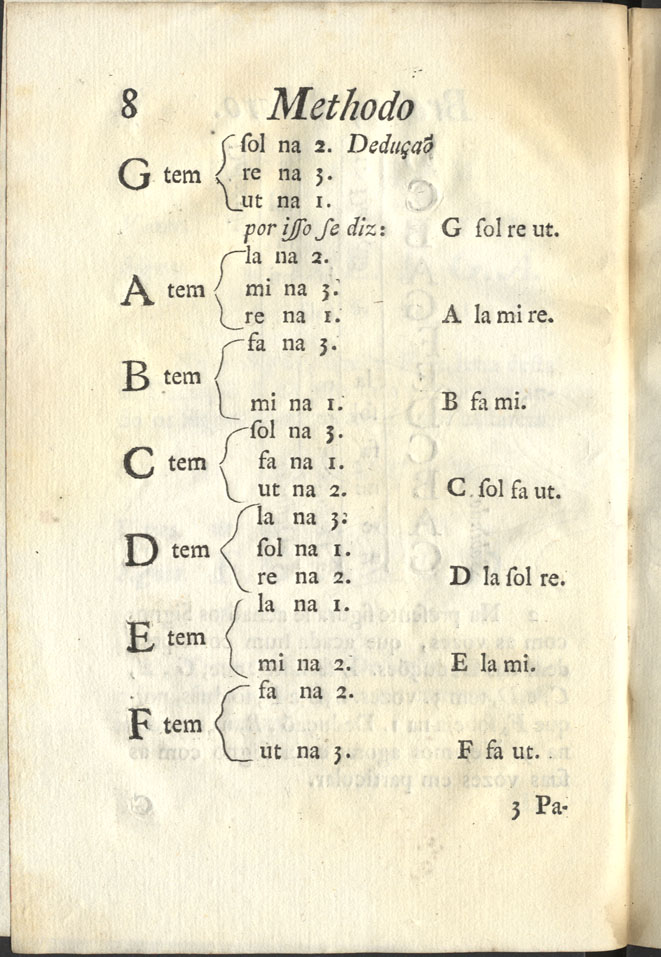 8 Methodo
ſol na 2. Deduçaõ
G tem re na 3.
ut na 1.
por iſſo ſe diz: G ſol re ut.
la na 2.
A tem mi na 3.
re na 1. A la mi re.
fa na 3.
B tem
mi na 1. B fa mi.
ſol na 3.
C tem fa na 1.
ut na 2. C ſol fa ut.
la na 3.
D tem ſol na 1.
re na 2. D la ſol re.
la na 1.
E tem
mi na 2. E la mi.
fa na 2.
F tem
ut na 3. F fa ut.
3 Pa-